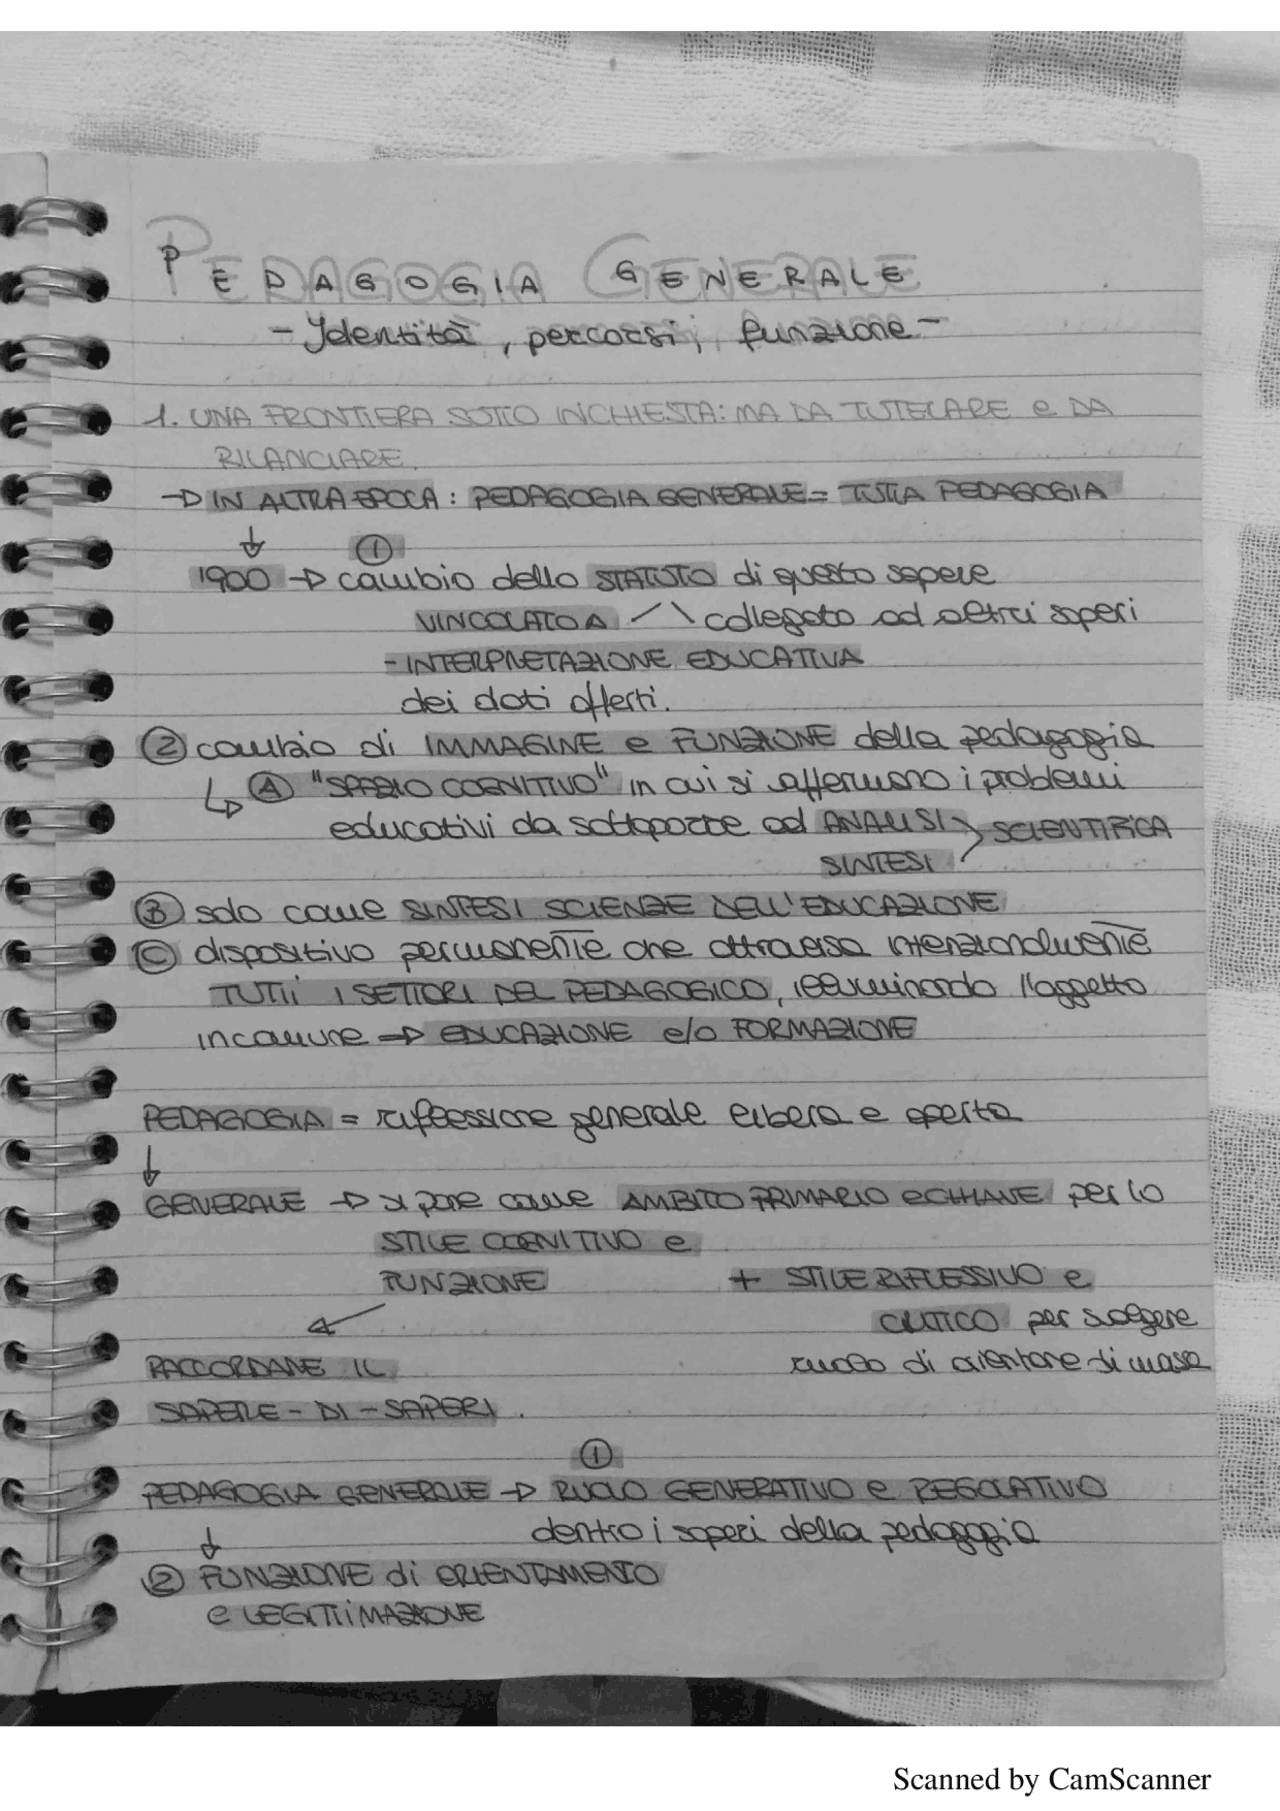 PEDAGOGIA GENERALE
- Identità, percorsi, funzione -
1. UNA FRONTIERA SOTTO INCHIESTA: MA DA TUTELARE e DA
RILANCIARE.
→ IN ALTRA EPOCA: PEDAGOGIA GENERALE = TUTTA PEDAGOGIA
↓ ①
1900 → cambio dello STATUTO di questo sapere
VINCOLATO A / \ collegato ad altri saperi
- INTERPRETAZIONE EDUCATIVA
dei dati offerti.
② cambio di IMMAGINE e FUNZIONE della pedagogia
↳ Ⓐ "SPAZIO COGNITIVO" in cui si affermano i problemi
educativi da sottoporre ad ANALISI > SCIENTIFICA
SINTESI
Ⓑ solo come SINTESI SCIENZE DELL'EDUCAZIONE
Ⓒ dispositivo permanente che attraversa intenzionalmente
TUTTI I SETTORI DEL PEDAGOGICO, illuminando l'aspetto
in comune ⇒ EDUCAZIONE e/o FORMAZIONE
PEDAGOGIA = riflessione generale libera e aperta
↓
GENERALE → si pone come AMBITO PRIMARIO e CHIAVE per lo
STILE COGNITIVO e
FUNZIONE + STILE RIFLESSIVO e
CRITICO per svolgere
RACCORDARE IL ruolo di orientare di
SAPERE - DI - SAPERI.
①
PEDAGOGIA GENERALE → RUOLO GENERATIVO e REGOLATIVO
↓ dentro i saperi della pedagogia
② FUNZIONE di ORIENTAMENTO
e LEGITTIMAZIONE
Scanned by CamScanner